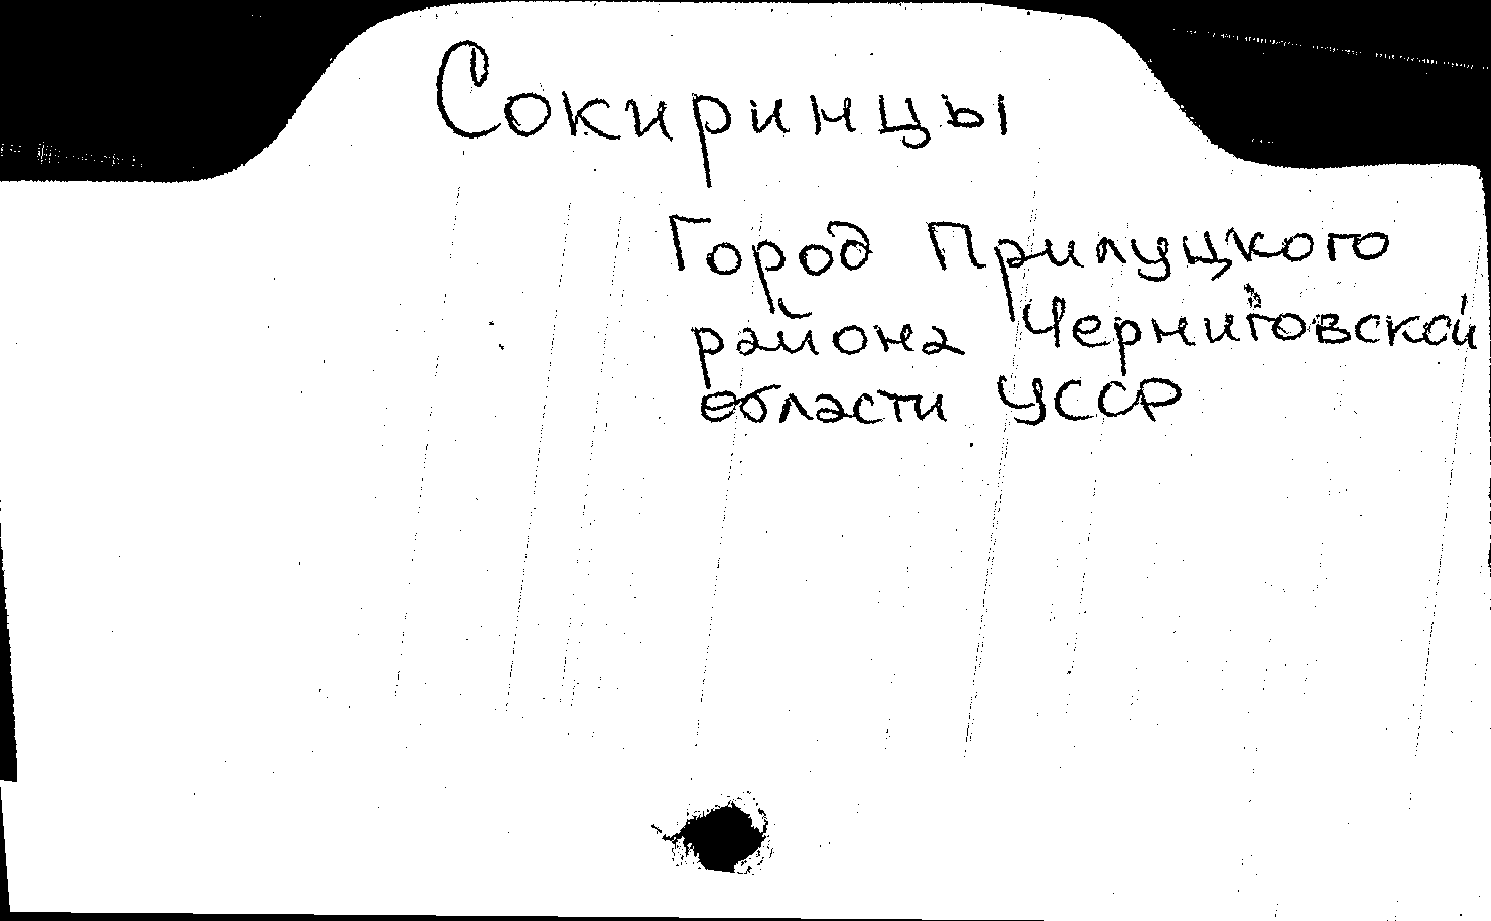 Сокиринцы
Город Прилуцкого
района Черниговской
области УССР